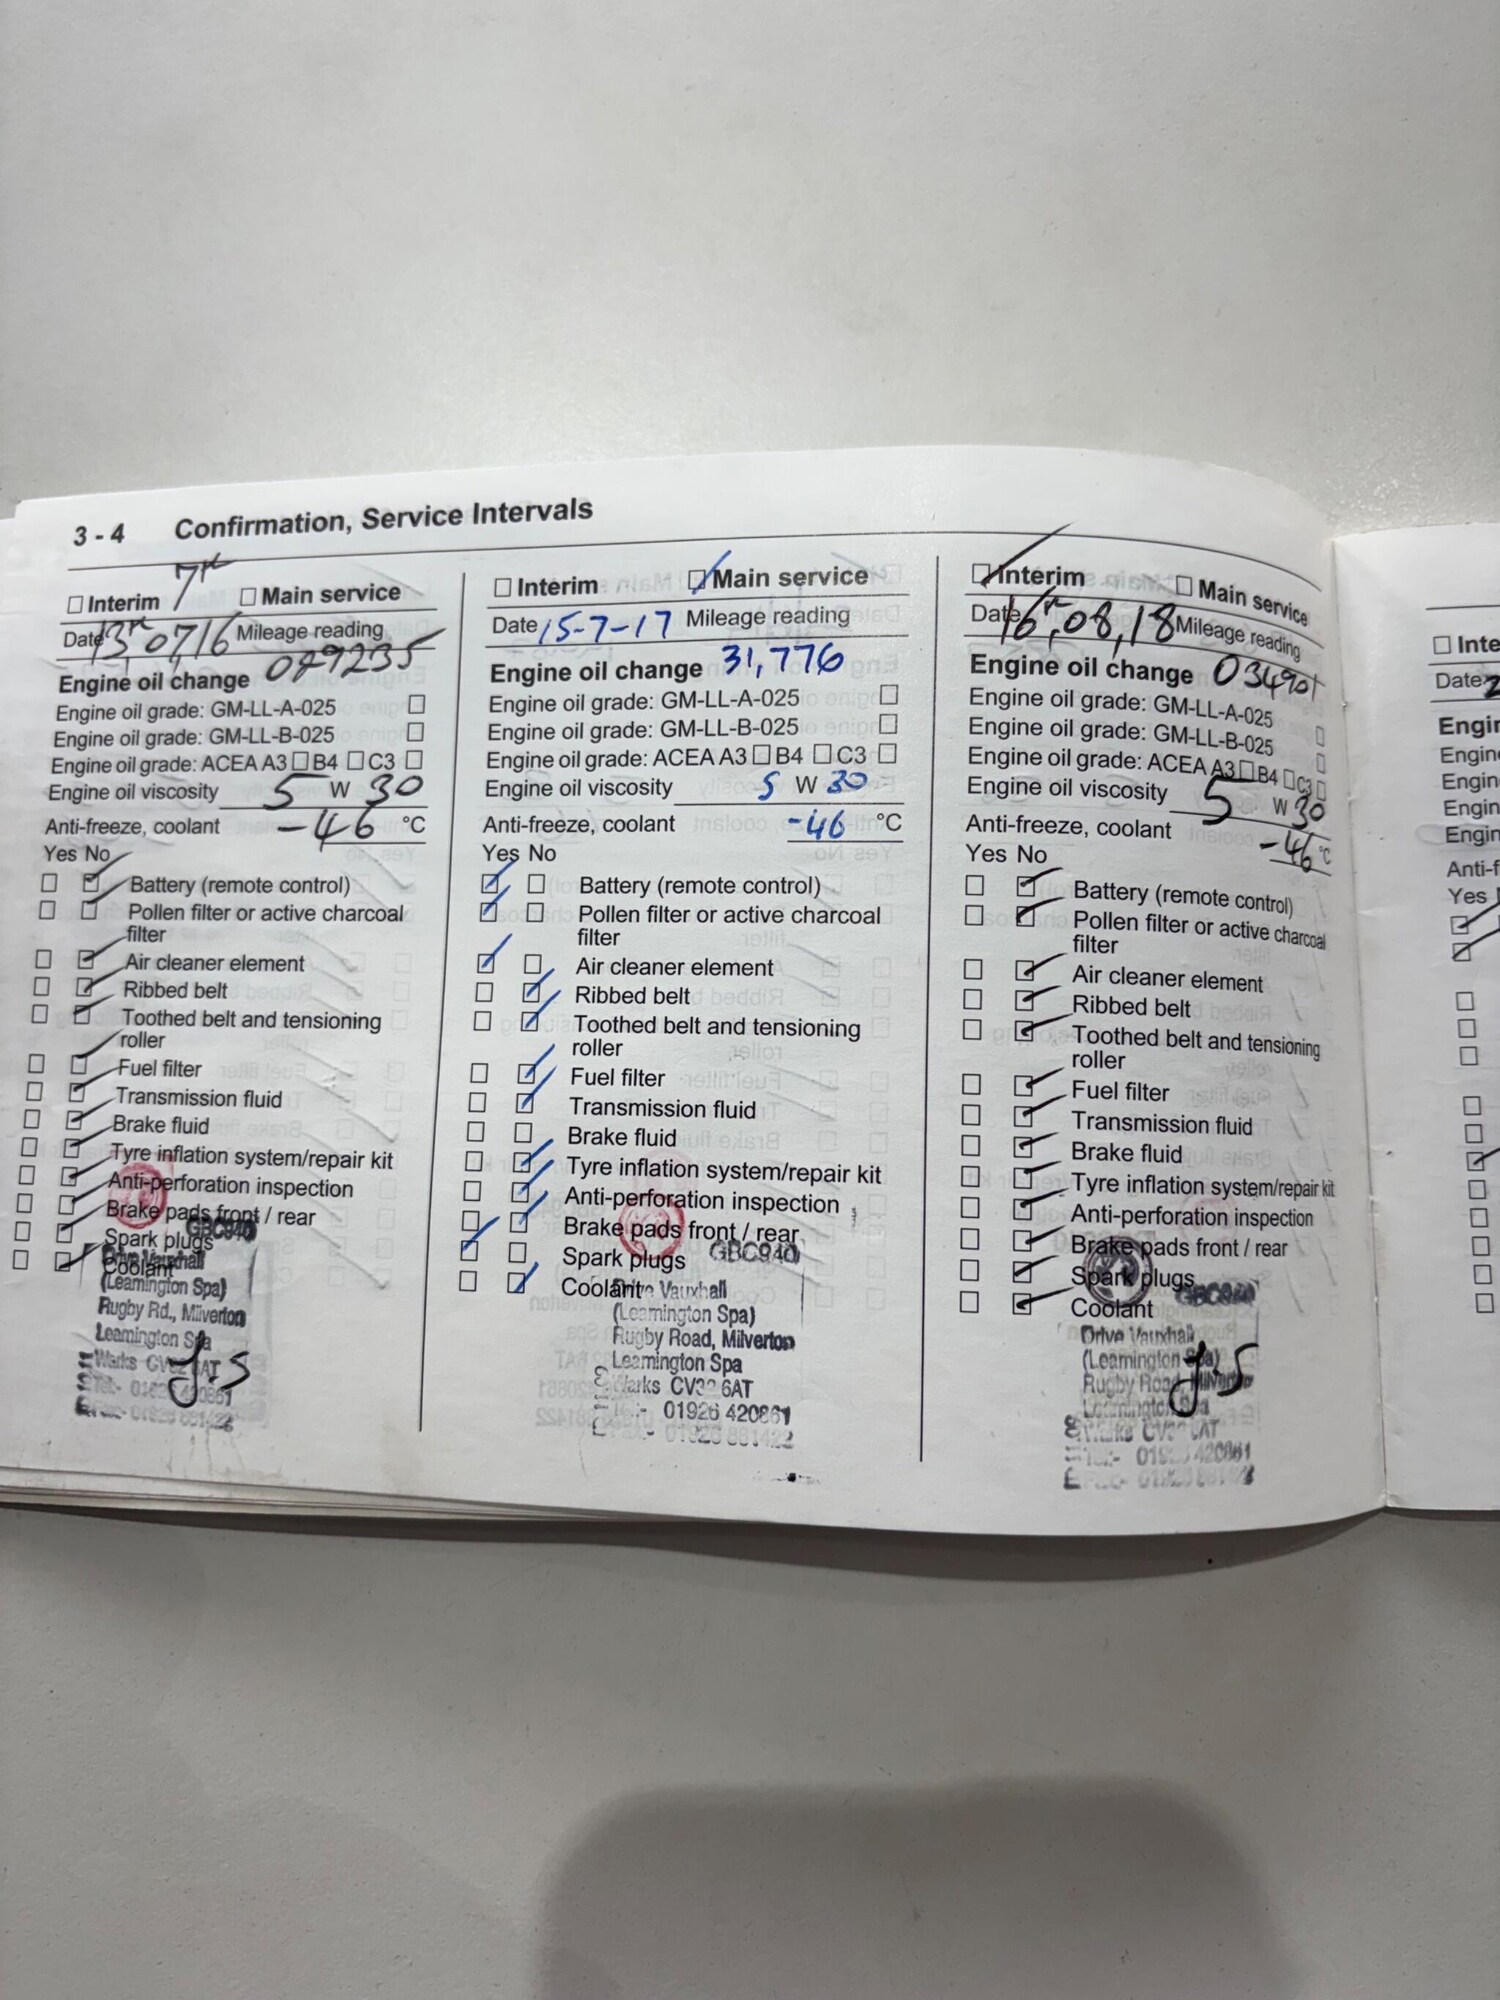 3 - 4 Confirmation, Service Intervals
☐ Interim ☐ Main service
Date 13 07 16 Mileage reading
Engine oil change 029235
Engine oil grade: GM-LL-A-025 ☐
Engine oil grade: GM-LL-B-025 ☐
Engine oil grade: ACEA A3 ☐ B4 ☐ C3 ☐
Engine oil viscosity 5 W 30
Anti-freeze, coolant -46 °C
Yes No
Battery (remote control)
Pollen filter or active charcoal
filter
Air cleaner element
Ribbed belt
Toothed belt and tensioning
roller
Fuel filter
Transmission fluid
Brake fluid
Tyre inflation system/repair kit
Anti-perforation inspection
Brake pads front / rear
Spark plugs
Coolant
GBC940
Drive Vauxhall
(Leamington Spa)
Rugby Rd., Milverton
Leamington Spa
Warks CV32 6AT
Tel:- 01926 420861
J.S
☐ Interim ☑ Main service
Date 15-7-17 Mileage reading
Engine oil change 31,776
Engine oil grade: GM-LL-A-025 ☐
Engine oil grade: GM-LL-B-025 ☐
Engine oil grade: ACEA A3 ☐ B4 ☐ C3 ☐
Engine oil viscosity 5 W 30
Anti-freeze, coolant -46 °C
Yes No
Battery (remote control)
Pollen filter or active charcoal
filter
Air cleaner element
Ribbed belt
Toothed belt and tensioning
roller
Fuel filter
Transmission fluid
Brake fluid
Tyre inflation system/repair kit
Anti-perforation inspection
Brake pads front / rear
Spark plugs
Coolant
GBC940
Drive Vauxhall
(Leamington Spa)
Rugby Road, Milverton
Leamington Spa
Warks CV32 6AT
Tel:- 01926 420861
01926 881422
☑ Interim ☐ Main service
Date 16,08,18 Mileage reading
Engine oil change 034901
Engine oil grade: GM-LL-A-025 ☐
Engine oil grade: GM-LL-B-025 ☐
Engine oil grade: ACEA A3 ☐ B4 ☐ C3 ☐
Engine oil viscosity 5 W 30
Anti-freeze, coolant -46 °C
Yes No
Battery (remote control)
Pollen filter or active charcoal
filter
Air cleaner element
Ribbed belt
Toothed belt and tensioning
roller
Fuel filter
Transmission fluid
Brake fluid
Tyre inflation system/repair kit
Anti-perforation inspection
Brake pads front / rear
Spark plugs
Coolant
GBC940
Drive Vauxhall
(Leamington Spa)
Rugby Road, Milverton
Leamington Spa
Warks CV32 6AT
Tel:- 01926 420861
J.S
☐ Inte
Date 2
Engin
Engine
Engine
Engin
Engine
Anti-f
Yes